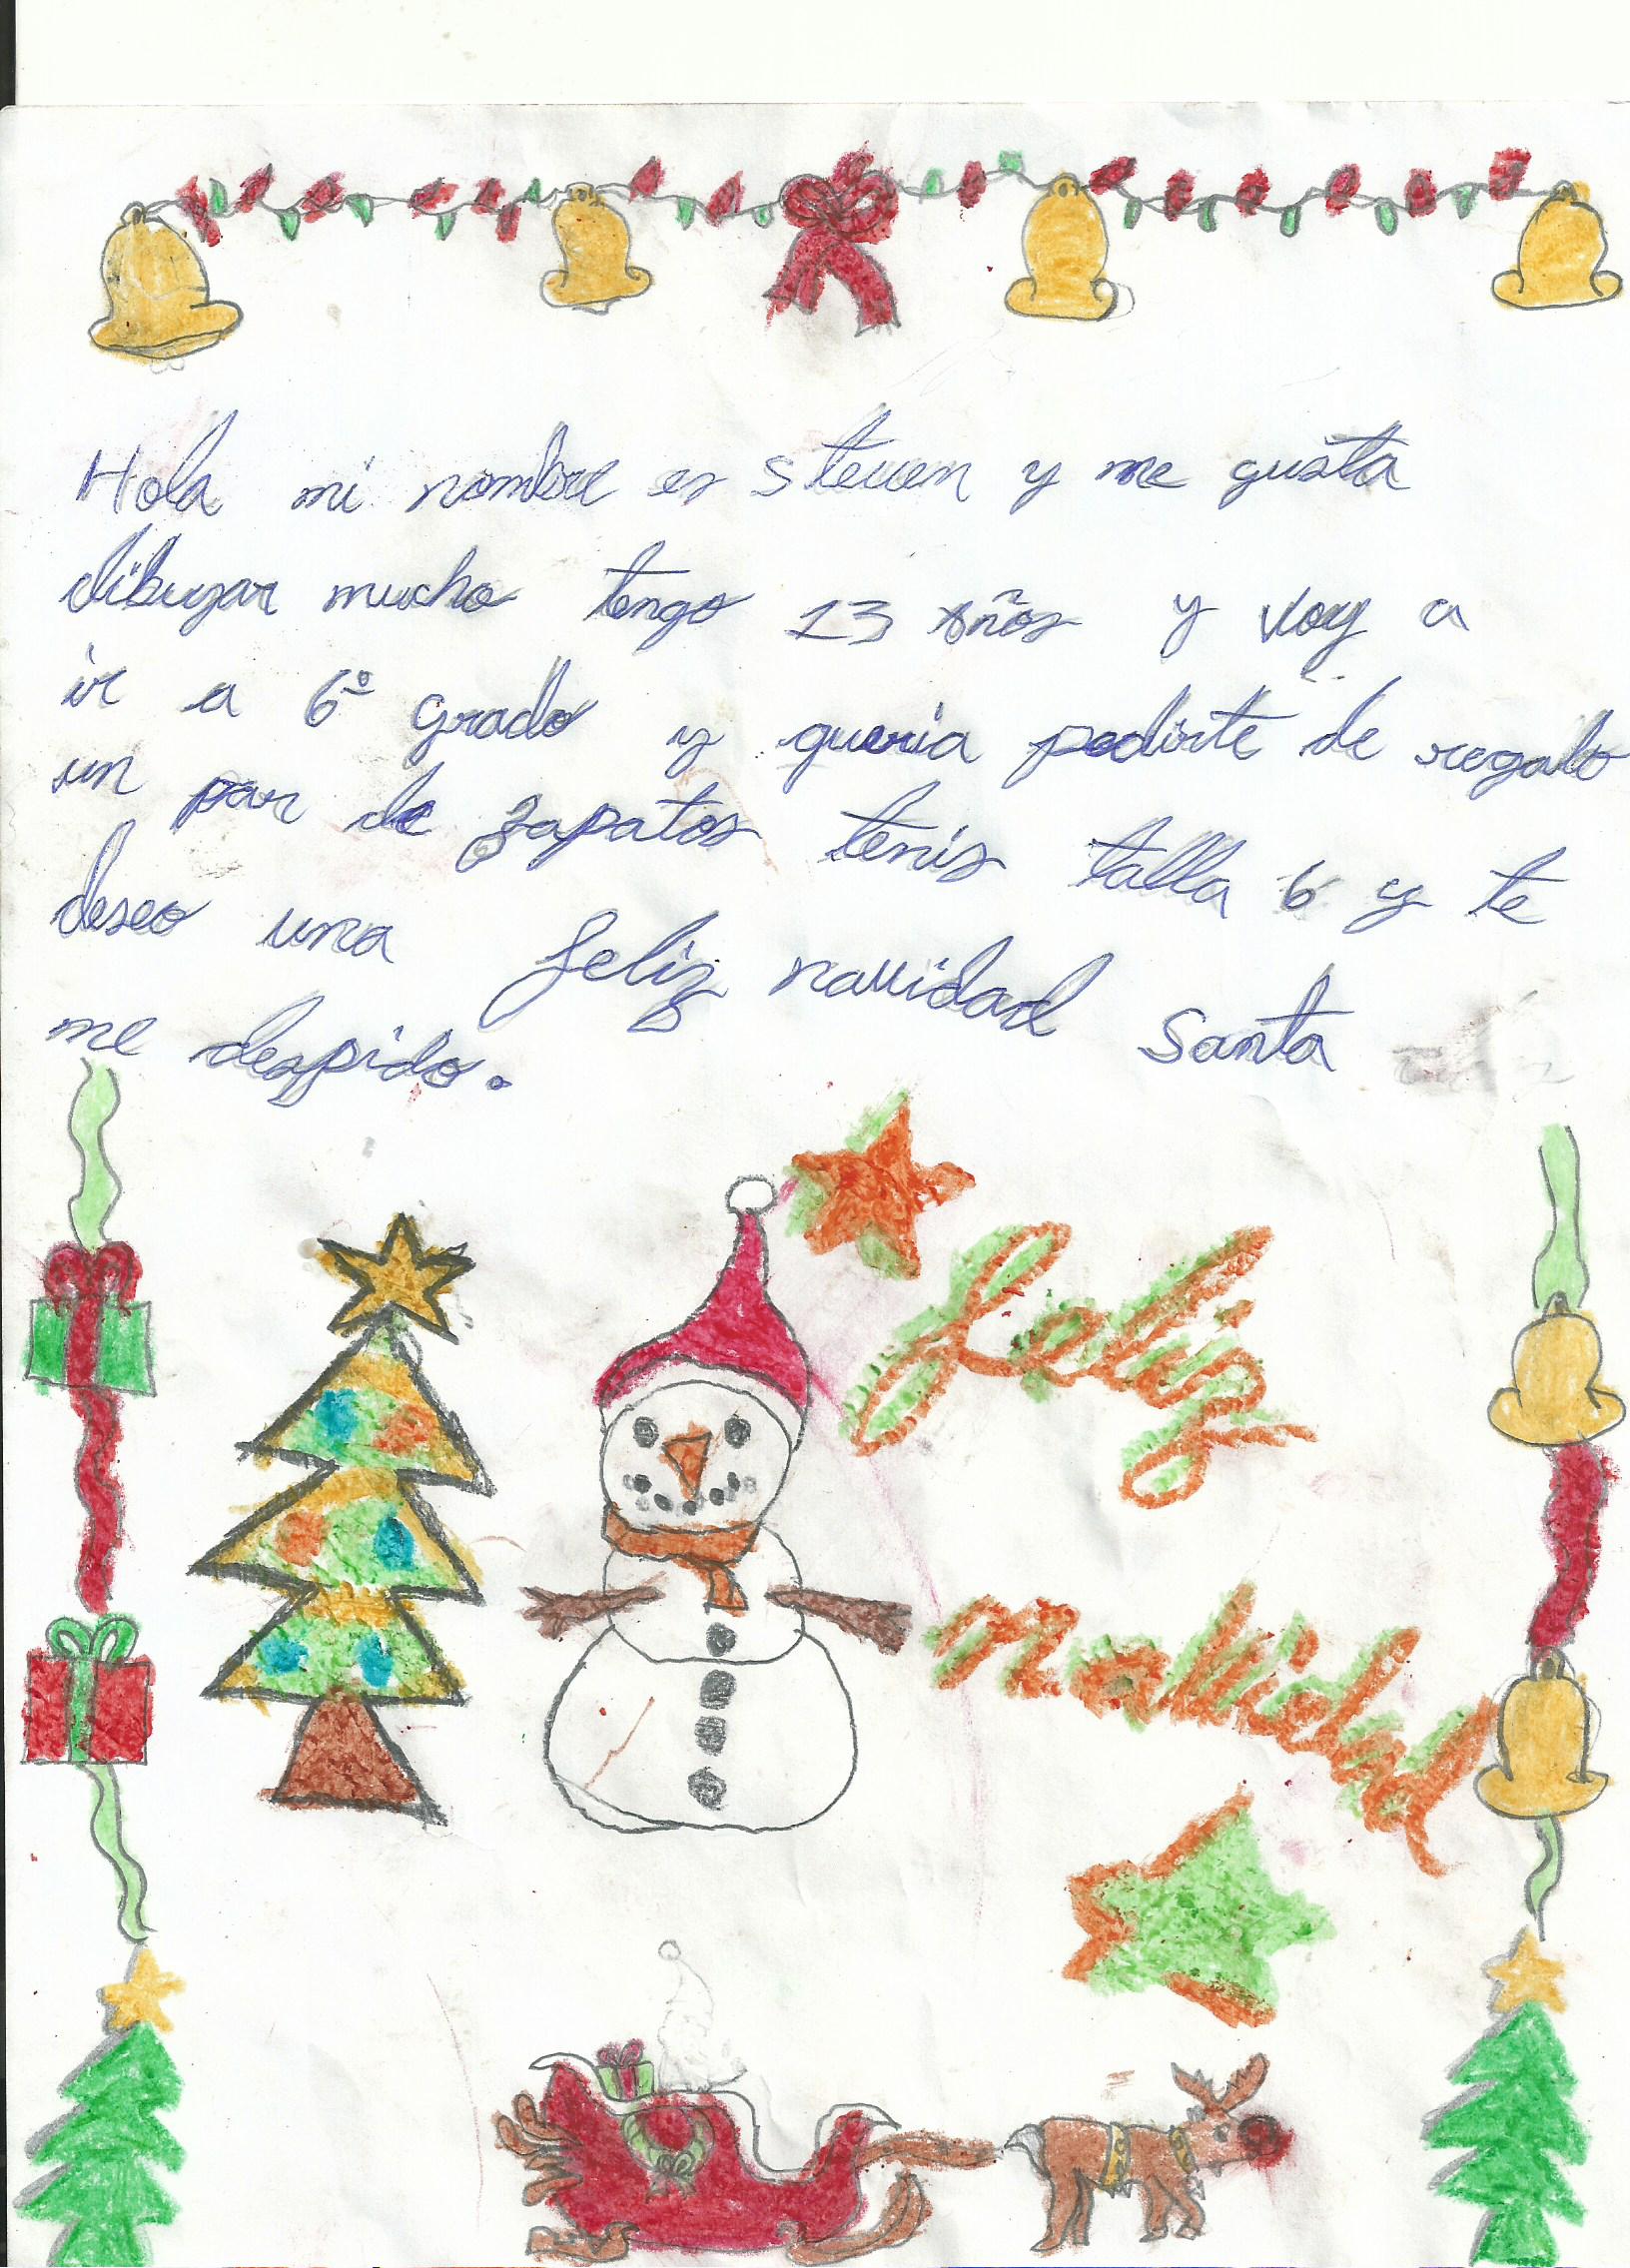 Hola mi nombre es Steven y me gusta
dibujar mucho tengo 13 años y voy a
ir a 6º grado y queria pedirte de regalo
un par de zapatos tenis talla 6 y te
deseo una feliz navidad Santa
me despido.
feliz
navidad